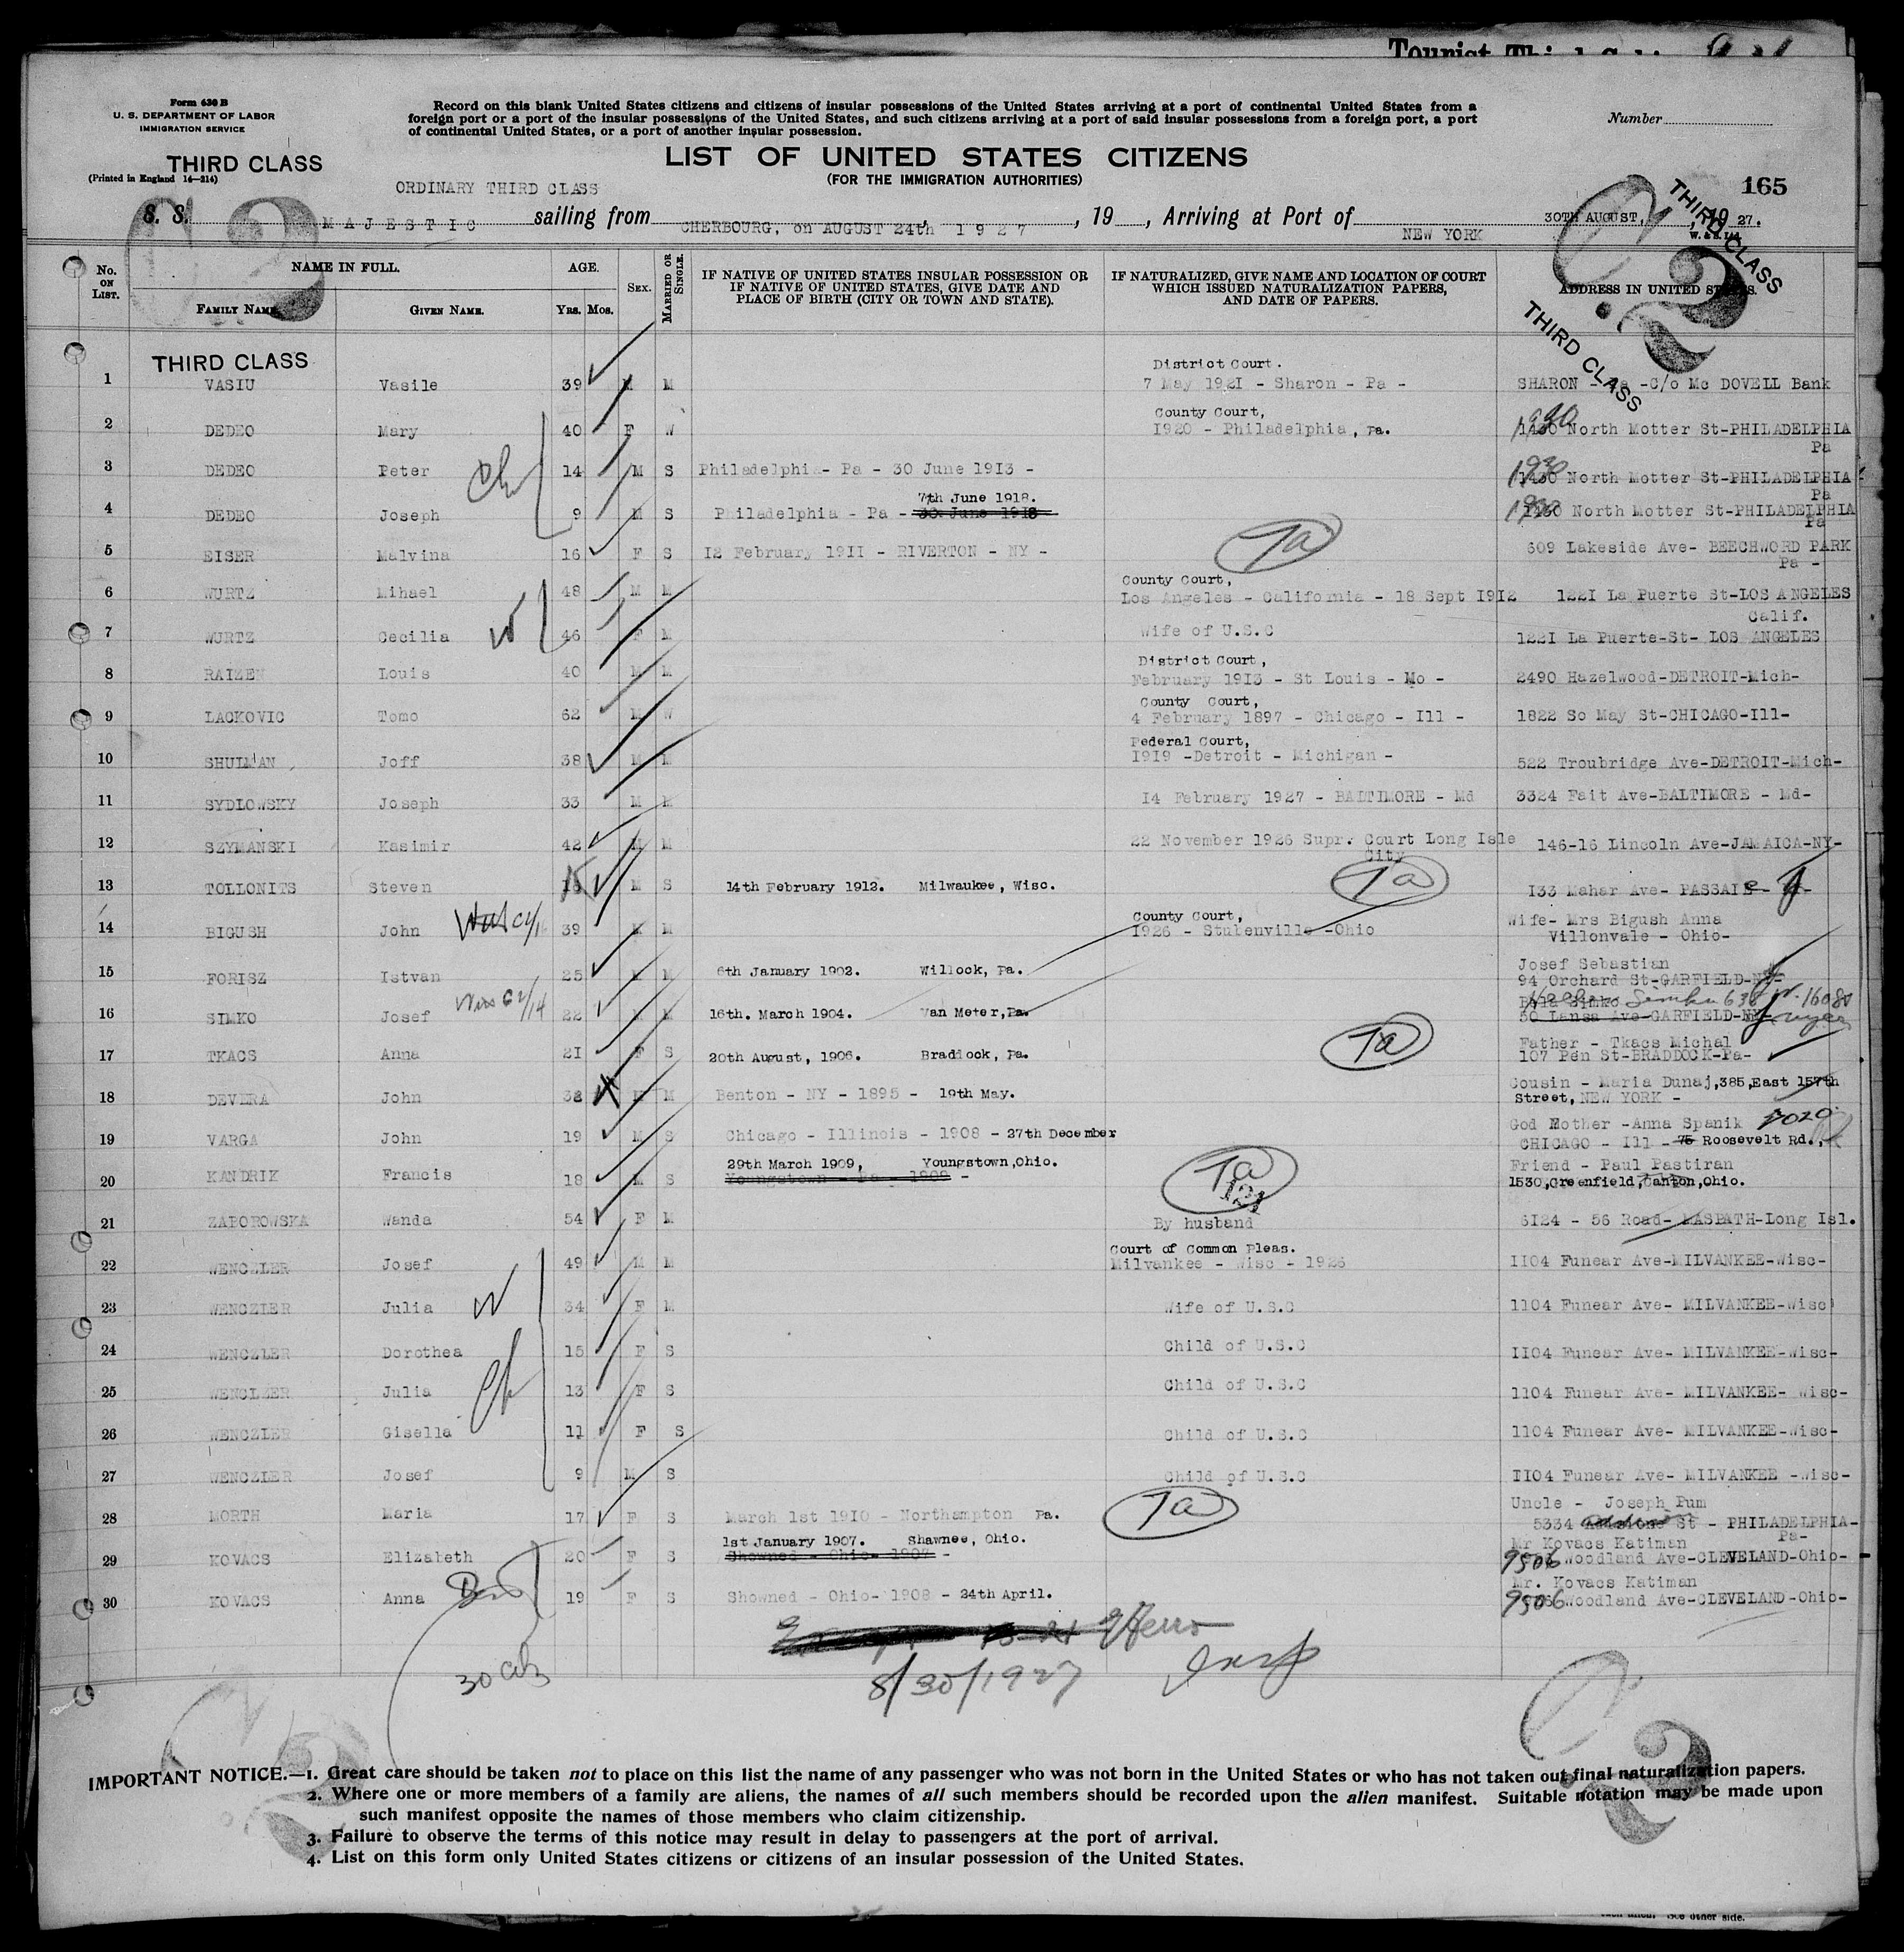 Tourist Third Cabin
Form 630 B
U. S. DEPARTMENT OF LABOR
IMMIGRATION SERVICE
THIRD CLASS
(Printed in England 14—214)
Record on this blank United States citizens and citizens of insular possessions of the United States arriving at a port of continental United States from a
foreign port or a port of the insular possessions of the United States, and such citizens arriving at a port of said insular possessions from a foreign port, a port
of continental United States, or a port of another insular possession.
Number
LIST OF UNITED STATES CITIZENS
(FOR THE IMMIGRATION AUTHORITIES)
165
THIRD CLASS
ORDINARY THIRD CLASS
S. S. MAJESTIC sailing from CHERBOURG, on AUGUST 24th 1927, 19 , Arriving at Port of NEW YORK 30TH AUGUST, 19 27.
No. ON LIST. NAME IN FULL. AGE. SEX. MARRIED OR SINGLE. IF NATIVE OF UNITED STATES INSULAR POSSESSION OR IF NATIVE OF UNITED STATES, GIVE DATE AND PLACE OF BIRTH (CITY OR TOWN AND STATE). IF NATURALIZED, GIVE NAME AND LOCATION OF COURT WHICH ISSUED NATURALIZATION PAPERS, AND DATE OF PAPERS. ADDRESS IN UNITED STATES.
FAMILY NAME. GIVEN NAME. YRS. MOS.
THIRD CLASS
THIRD CLASS
District Court.
1 VASIU Vasile 39 M M 7 May 1921 - Sharon - Pa - SHARON - Pa -C/o Mc DOVELL Bank
County Court,
2 DEDEO Mary 40 F W 1920 - Philadelphia, Pa. 1430 North Motter St-PHILADELPHIA
1930
Pa
3 DEDEO Peter 14 M S Philadelphia- Pa - 30 June 1913 - 1430 North Motter St-PHILADELPHIA
1930
Ch
Pa
7th June 1918.
4 DEDEO Joseph 9 M S Philadelphia - Pa - 30 June 1918 1430 North Motter St-PHILADELPHIA
1930
Pa
5 EISER Malvina 16 F S 12 February 1911 - RIVERTON - NY - 609 Lakeside Ave- BEECHWORD PARK
Pa -
County Court,
6 WURTZ Mihael 48 M M Los Angeles - California - 18 Sept 1912 1221 La Puerte St-LOS ANGELES
Calif.
7 WURTZ Cecilia W 46 F M Wife of U.S.C 1221 La Puerte-St- LOS ANGELES
District Court,
8 RAIZEN Louis 40 M M February 1913 - St Louis - Mo - 2490 Hazelwood-DETROIT-Mich-
County Court,
9 LACKOVIC Tomo 62 M W 4 February 1897 - Chicago - Ill - 1822 So May St-CHICAGO-Ill-
Federal Court,
10 SHULMAN Joff 38 M M 1919 -Detroit - Michigan - 522 Troubridge Ave-DETROIT-Mich-
11 SYDLOWSKY Joseph 33 M M 14 February 1927 - BALTIMORE - Md 3324 Fait Ave-BALTIMORE - Md-
12 SZYMANSKI Kasimir 42 M M 22 November 1926 Supr. Court Long Isle 146-16 Lincoln Ave-JAMAICA-NY-
City
13 TOLLONITS Steven 15 M S 14th February 1912. Milwaukee, Wisc. 133 Mahar Ave- PASSAIC
County Court,
Wife- Mrs Bigush Anna
14 BIGUSH John 39 M M 1926 - Stubenville -Ohio
Villonvale - Ohio-
Josef Sebastian
15 FORISZ Istvan 25 M M 6th January 1902. Willock, Pa. 94 Orchard St-GARFIELD-NY-
16 SIMKO Josef 22 M M 16th. March 1904. Van Meter, Pa. 50 Lansa Ave-GARFIELD-NY-
Father - Tkacs Michal
17 TKACS Anna 21 F S 20th August, 1906. Bradlock, Pa. 107 Pen St-BRADDOCK-Pa-
Cousin - Maria Dunaj,385,East 157th
18 DEVERA John 32 M M Benton - NY - 1895 - 19th May. Street, NEW YORK -
God Mother -Anna Spanik 7020
19 VARGA John 19 M S Chicago - Illinois - 1908 - 27th December CHICAGO - Ill - 75 Roosevelt Rd.,
29th March 1909, Youngstown,Ohio. Friend - Paul Pastiran
20 KANDRIK Francis 18 M S Youngstown - Pa - 1908 - 1530,Greenfield,Canton,Ohio.
21 ZABOROWSKA Wanda 54 F M By husband 6124 - 56 Road- MASPATH-Long Isl.
Court of Common Pleas.
22 WENCZLER Josef 49 M M Milvankee - Wisc - 1926 1104 Funear Ave-MILVANKEE-Wisc-
23 WENCZLER Julia W 34 F M Wife of U.S.C 1104 Funear Ave- MILVANKEE-Wisc
24 WENCZLER Dorothea 15 F S Child of U.S.C 1104 Funear Ave- MILVANKEE-Wisc-
25 WENCLZER Julia Ch 13 F S Child of U.S.C 1104 Funear Ave- MILVANKEE- Wisc-
26 WENCZLER Gisella 11 F S Child of U.S.C 1104 Funear Ave- MILVANKEE-Wisc-
27 WENCZLER Josef 9 M S Child of U.S.C 1104 Funear Ave- MILVANKEE -Wisc-
Uncle - Joseph Pum
28 MORTH Maria 17 F S March 1st 1910 - Northampton Pa. 5334 St - PHILADELPHIA-
Pa-
1st January 1907. Shawnee, Ohio. Mr Kovacs Katiman
29 KOVACS Elizabeth 20 F S Showned - Ohio- 1907 - 9506 Woodland Ave-CLEVELAND-Ohio-
Mr. Kovacs Katiman
30 KOVACS Anna 19 F S Showned - Ohio- 1908 - 24th April. 9506 Woodland Ave-CLEVELAND-Ohio-
8/30/1927
IMPORTANT NOTICE.—1. Great care should be taken not to place on this list the name of any passenger who was not born in the United States or who has not taken out final naturalization papers.
2. Where one or more members of a family are aliens, the names of all such members should be recorded upon the alien manifest. Suitable notation may be made upon
such manifest opposite the names of those members who claim citizenship.
3. Failure to observe the terms of this notice may result in delay to passengers at the port of arrival.
4. List on this form only United States citizens or citizens of an insular possession of the United States.
See other side.